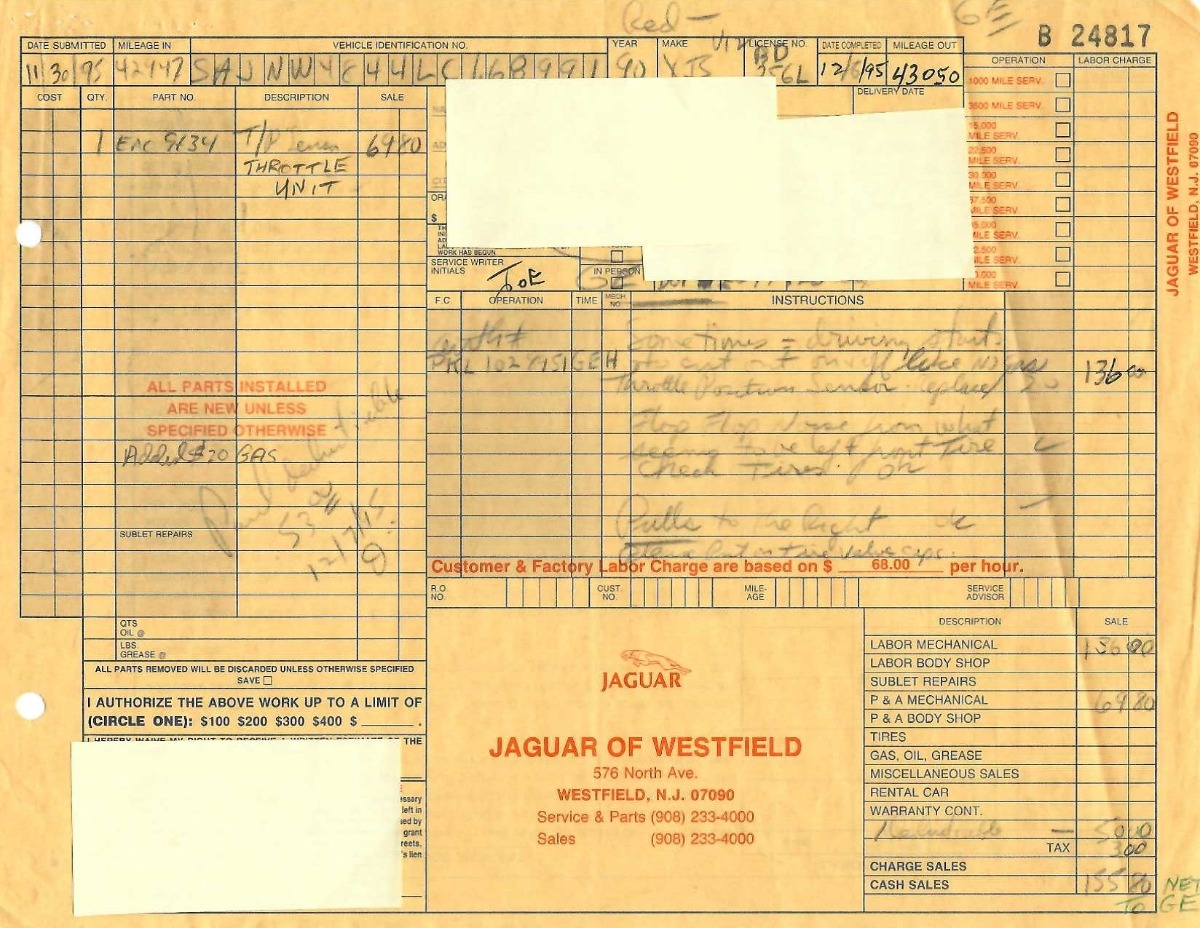 Red —
GE
B 24817
DATE SUBMITTED MILEAGE IN VEHICLE IDENTIFICATION NO. YEAR MAKE V12 LICENSE NO. DATE COMPLETED MILEAGE OUT
11 30 95 42947 SAJNWY 44LC168991 90 XJS BD 356L 12/ /95 43050
COST QTY. PART NO. DESCRIPTION SALE
DELIVERY DATE
OPERATION LABOR CHARGE
1000 MILE SERV.
3500 MILE SERV.
15,000
MILE SERV.
22,500
MILE SERV.
30,000
MILE SERV.
37,500
MILE SERV.
5,000
MILE SERV.
2,500
MILE SERV.
0,000
MILE SERV.
1 EAC 9134 T/P 69 80
THROTTLE
UNIT
$
WORK HAS BEGUN
SERVICE WRITER
INITIALS JOE
IN PERSON
F.C. OPERATION TIME MECH. NO INSTRUCTIONS
Sometimes = driving starts
PKL 102 GEH to cut on off like No gas 136 00
Throttle Position Sensor replace
Flop Flop Noise from what
seems to be left front Tire
Check Tires. OK
Pulls to the Right OK
Put on tire valve caps.
ALL PARTS INSTALLED
ARE NEW UNLESS
SPECIFIED OTHERWISE
Added $20 GAS
Paid deductible
53 00
12/7/95
SUBLET REPAIRS
Customer & Factory Labor Charge are based on $ 68.00 per hour.
R.O. NO. CUST. NO. MILE-AGE SERVICE ADVISOR
QTS
OIL @
LBS
GREASE @
ALL PARTS REMOVED WILL BE DISCARDED UNLESS OTHERWISE SPECIFIED
SAVE
I AUTHORIZE THE ABOVE WORK UP TO A LIMIT OF
(CIRCLE ONE): $100 $200 $300 $400 $ .
I HEREBY WAIVE MY RIGHT TO RECEIVE A WRITTEN ESTIMATE OF THE
essary
left in
ed by
grant
reets,
's lien
JAGUAR
JAGUAR OF WESTFIELD
576 North Ave.
WESTFIELD, N.J. 07090
Service & Parts (908) 233-4000
Sales (908) 233-4000
DESCRIPTION SALE
LABOR MECHANICAL 136 00
LABOR BODY SHOP
SUBLET REPAIRS
P & A MECHANICAL 69 80
P & A BODY SHOP
TIRES
GAS, OIL, GREASE
MISCELLANEOUS SALES
RENTAL CAR
WARRANTY CONT.
— 50 00
TAX 3 00
CHARGE SALES
CASH SALES 155 80 NET
TO GE
JAGUAR OF WESTFIELD
WESTFIELD, N.J. 07090